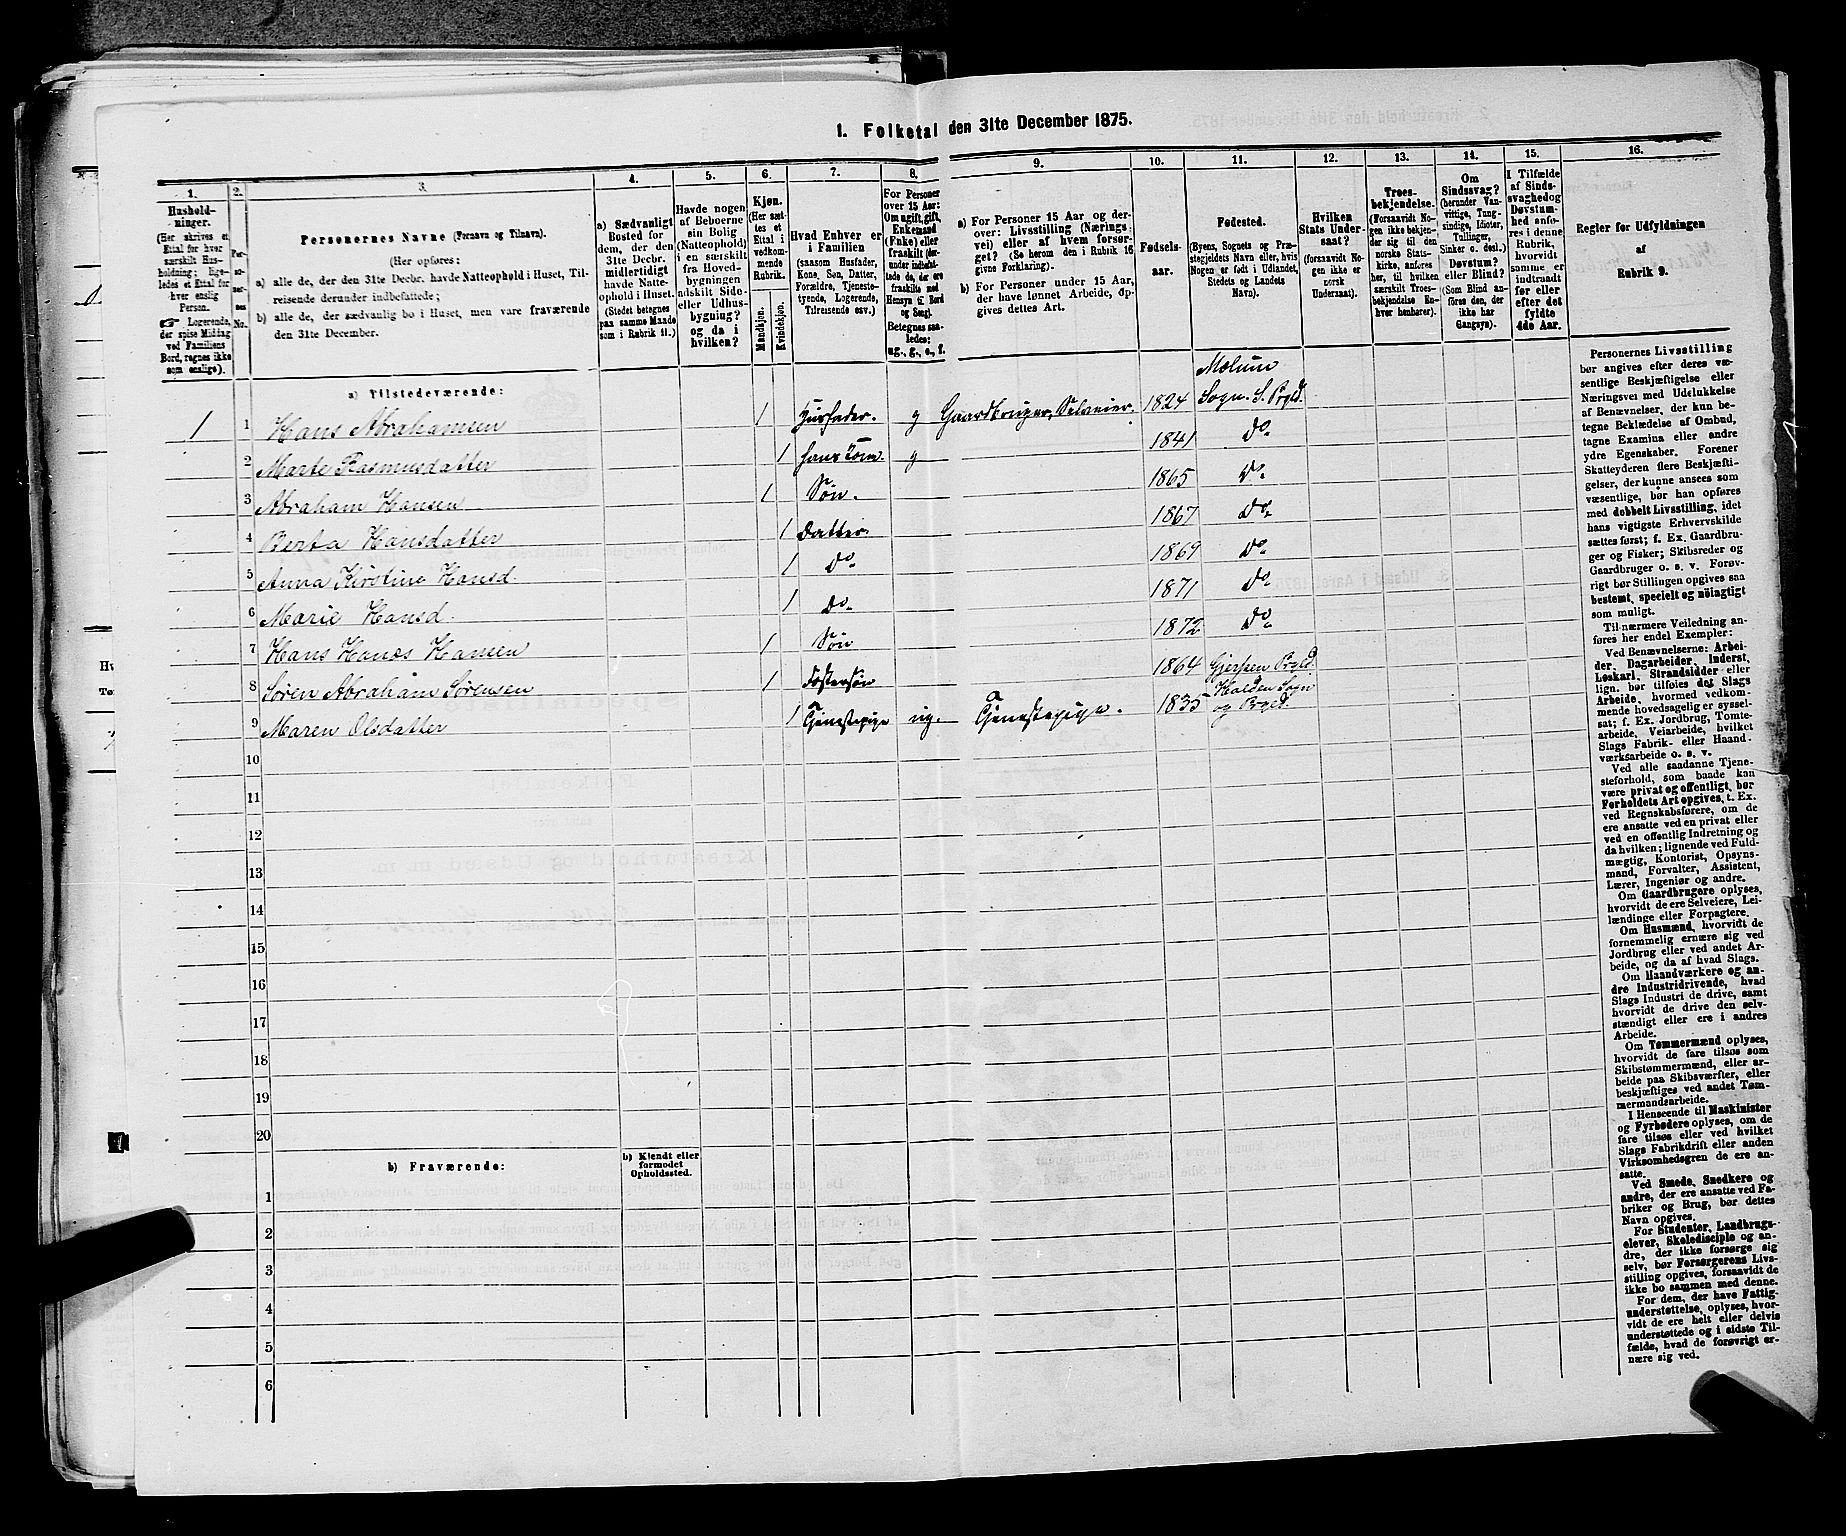 1. Folketal den 31te December 1875.
1.
2.
3.
4.
5.
6.
7.
8.
9.
10.
11.
12.
13.
14.
15.
16.
Hushold-
ninger.
(Her skrives et
Ettal for hver
særskilt Hus-
holdning; lige-
ledes et Ettal for
hver enslig
Person.
Logerende,
der spise Middag
ved Familiens
Bord, regnes ikke
som enslige).
Per-
so-
ner-
nes
No.
Personernes Navne (Fornavn og Tilnavn).
(Her opføres:
a) alle de, der den 31te Decbr. havde Natteophold i Huset, Til-
reisende derunder indbefattede;
b) alle de, der sædvanlig bo i Huset, men vare fraværende
den 31te December.
a) Sædvanligt
Bosted for
dem, der den
31te Decbr.
midlertidigt
havde Natte-
ophold i Huset.
(Stedet betegnes
paa samme Maade
som i Rubrik 11.)
Havde nogen
af Beboerne
sin Bolig
(Natteophold)
i en særskilt
fra Hoved-
bygningen
adskilt Side-
eller Udhus-
bygning?
og da i
hvilken?
Kjøn.
(Her sæt-
tes et
Ettal i
vedkom-
mende
Rubrik.
Mandkjøn.
Kvindekjøn.
Hvad Enhver er
i Familien
(saasom Husfader,
Kone, Søn, Datter,
Forældre, Tjeneste-
tyende, Logerende,
Tilreisende osv.)
For Personer
over 15 Aar:
Om ugift, gift,
Enkemand
(Enke) eller
fraskilt (der-
under indbefat-
tede de, der ere
fraskilte med
Hensyn til Bord
og Seng).
Betegnes saa-
ledes:
ug., g., e., f.
a) For Personer 15 Aar og der-
over: Livsstilling (Nærings-
vei) eller af hvem forsør-
get? (Se herom den i Rubrik 16
givne Forklaring).
b) For Personer under 15 Aar,
der have lønnet Arbeide, op-
gives dettes Art.
Fødsels-
aar.
Fødested.
(Byens, Sognets og Præ-
stegjeldets Navn eller, hvis
Nogen er født i Udlandet,
Stedets og Landets
Navn).
Hvilken
Stats Under-
saat?
(forsaavidt No-
gen ikke er
norsk
Undersaat).
Troes-
bekjendelse.
(Forsaavidt No-
gen ikke bekjen-
der sig til den
norske Stats-
kirke, anføres
her, til hvilken
særskilt Troes-
bekjendelse En-
hver henhører).
Om
Sindssvag?
(herunder Van-
vittige, Tung-
sindige, Idioter,
Tullinger,
Sinker o. desl.)
Døvstum?
eller Blind?
(Som Blind an-
føres den, der
ikke har
Gangsyn).
I Tilfælde
af Sinds-
svaghed og
Døvstum-
hed anfø-
res i denne
Rubrik,
hvorvidt
samme er
indtraadt
før eller
efter det
fyldte
4de Aar.
Regler for Udfyldningen
af
Rubrik 9.
a) Tilstedeværende:
1 1 Hans Abrahamsen 1 Husfader. g Gaardbruger, Selveier. 1824 Mælum Sogn. S. Prgld.
2 Marte Rasmusdatter 1 hans Kone. g 1841 Do.
3 Abraham Hansen 1 Søn. 1865 Do.
4 Berta Hansdatter 1 Datter. 1867 Do.
5 Anna Kirstine Hansd. 1 Do. 1869 Do.
6 Marie Hansd. 1 Do. 1871 Do.
7 Hans Hanses Hansen 1 Søn 1872 Do.
8 Søren Abraham Sørensen 1 Fostersøn 1864 Gjerpen Prgld.
9 Maren Olsdatter 1 Tjenestepige ug. Tjenestepige. 1835 Halden Sogn og Prgld.
10
11
12
13
14
15
16
17
18
19
20
b) Fraværende:
b) Kjendt eller
formodet
Opholdssted.
1
2
3
4
5
6
Personernes Livsstilling
bør angives efter deres væ-
sentlige Beskjæftigelse eller
Næringsvei med Udelukkelse
af Benævnelser, der kun be-
tegne Beklædelse af Ombud,
tagne Examina eller andre
ydre Egenskaber. Forener
Skatteyderen flere Beskjæfti-
gelser, der kunne ansees som
væsentlige, bør han opføres
med dobbelt Livsstilling, idet
hans vigtigste Erhvervskilde
sættes først; f. Ex. Gaardbru-
ger og Fisker; Skibsreder og
Gaardbruger o. s. v. Forøv-
rigt bør Stillingen opgives saa
bestemt, specielt og nöiagtigt
som muligt.
Til nærmere Veiledning an-
føres her endel Exempler:
Ved Benævnelserne: Arbei-
der, Dagarbeider, Inderst,
Løskarl, Strandsidder eller
lign. bør tilføies det Slags
Arbeide, hvormed vedkom-
mende hovedsagelig er syssel-
sat; f. Ex. Jordbrug, Tomte-
arbeide, Veiarbeide, hvilket
Slags Fabrik- eller Haand-
værksarbeide o. s. v.
Ved alle saadanne Tjene-
steforhold, som baade kan
være privat og offentligt, bør
Forholdets Art opgives, t. Ex.
ved Regnskabsførere, om de
ere ansatte ved en privat eller
ved en offentlig Indretning og
da hvilken; lignende ved Fuld-
mægtig, Kontorist, Opsyns-
mand, Forvalter, Assistent,
Lærer, Ingeniør og andre.
Om Gaardbrugere oplyses,
hvorvidt de ere Selveiere, Lei-
lændinge eller Forpagtere.
Om Husmænd, hvorvidt de
fornemmelig ernære sig ved
Jordbrug eller ved andet Ar-
beide, og da af hvad Slags.
Om Haandværkere og an-
dre Industridrivende, hvad
Slags Industri de drive, samt
hvorvidt de drive den selv-
stændigt eller ere i andres
Arbeide.
Om Tømmermænd oplyses,
hvorvidt de fare tilsøs som
Skibstømmermænd, eller ar-
beide paa Skibsværfter, eller
beskjæftiges ved andet Tøm-
mermandsarbeide.
I Henseende til Maskinister
og Fyrbødere oplyses, om de
fare tilsøs eller ved hvilket
Slags Fabrikdrift eller anden
Virksomhedsgren de ere an-
satte.
Ved Smede, Snedkere og
andre, der ere ansatte ved Fa-
briker og Brug, bør dettes
Navn opgives.
For Studenter, Landbrugs-
elever, Skoledisciple og an-
dre, der ikke forsørge sig
selv, bør Forsørgerens Livs-
stilling opgives, forsaavidt de
ikke bo sammen med denne.
For dem, der have Fattig-
understøttelse, oplyses, hvor-
vidt de ere helt eller delvis
understøttede og i sidste Til-
fælde, hvad de forøvrigt er-
nære sig ved.